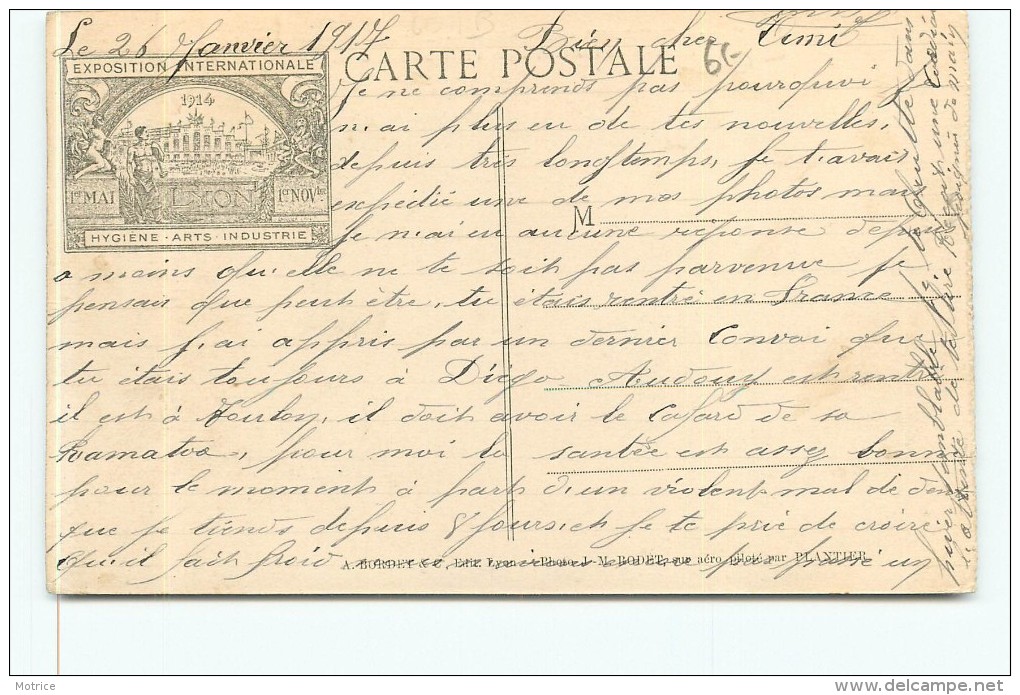 Le 26 Janvier 1917 Bien cher Mimi
CARTE POSTALE
6E
EXPOSITION INTERNATIONALE
1914
1er MAI LYON 1er NOVbre
HYGIENE · ARTS · INDUSTRIE
M
Je ne comprends pas pourquoi je
n'ai plus eu de tes nouvelles,
depuis très longtemps, je t'avais
expédié une de mes photos mais
je n'ai eu aucune réponse depuis
a moins qu'elle ne te soit pas parvenue je
pensais que peut être, tu étais rentré en France
mais j'ai appris par un dernier convoi que
tu étais toujours à Diégo Audouy est rentré
il est à Toulon, il doit avoir le cafard de sa
Ramatoa, pour moi la santée est assez bonne
pour le moment à part d'un violent mal de dent
que je tiends depuis 8 jours, et je te prie de croire
qu'il fait froid
A. BORDET & Cie, Edit. Lyon — Photo J. M. BODET, sur aéro piloté par PLANTIER
un
hiver semblable. Je te quitte dans
l'attente de te lire Reçois une cordiale
poignée de main
Motrice
delcampe.net